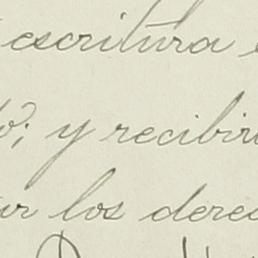 escritura
y recibir
los derec